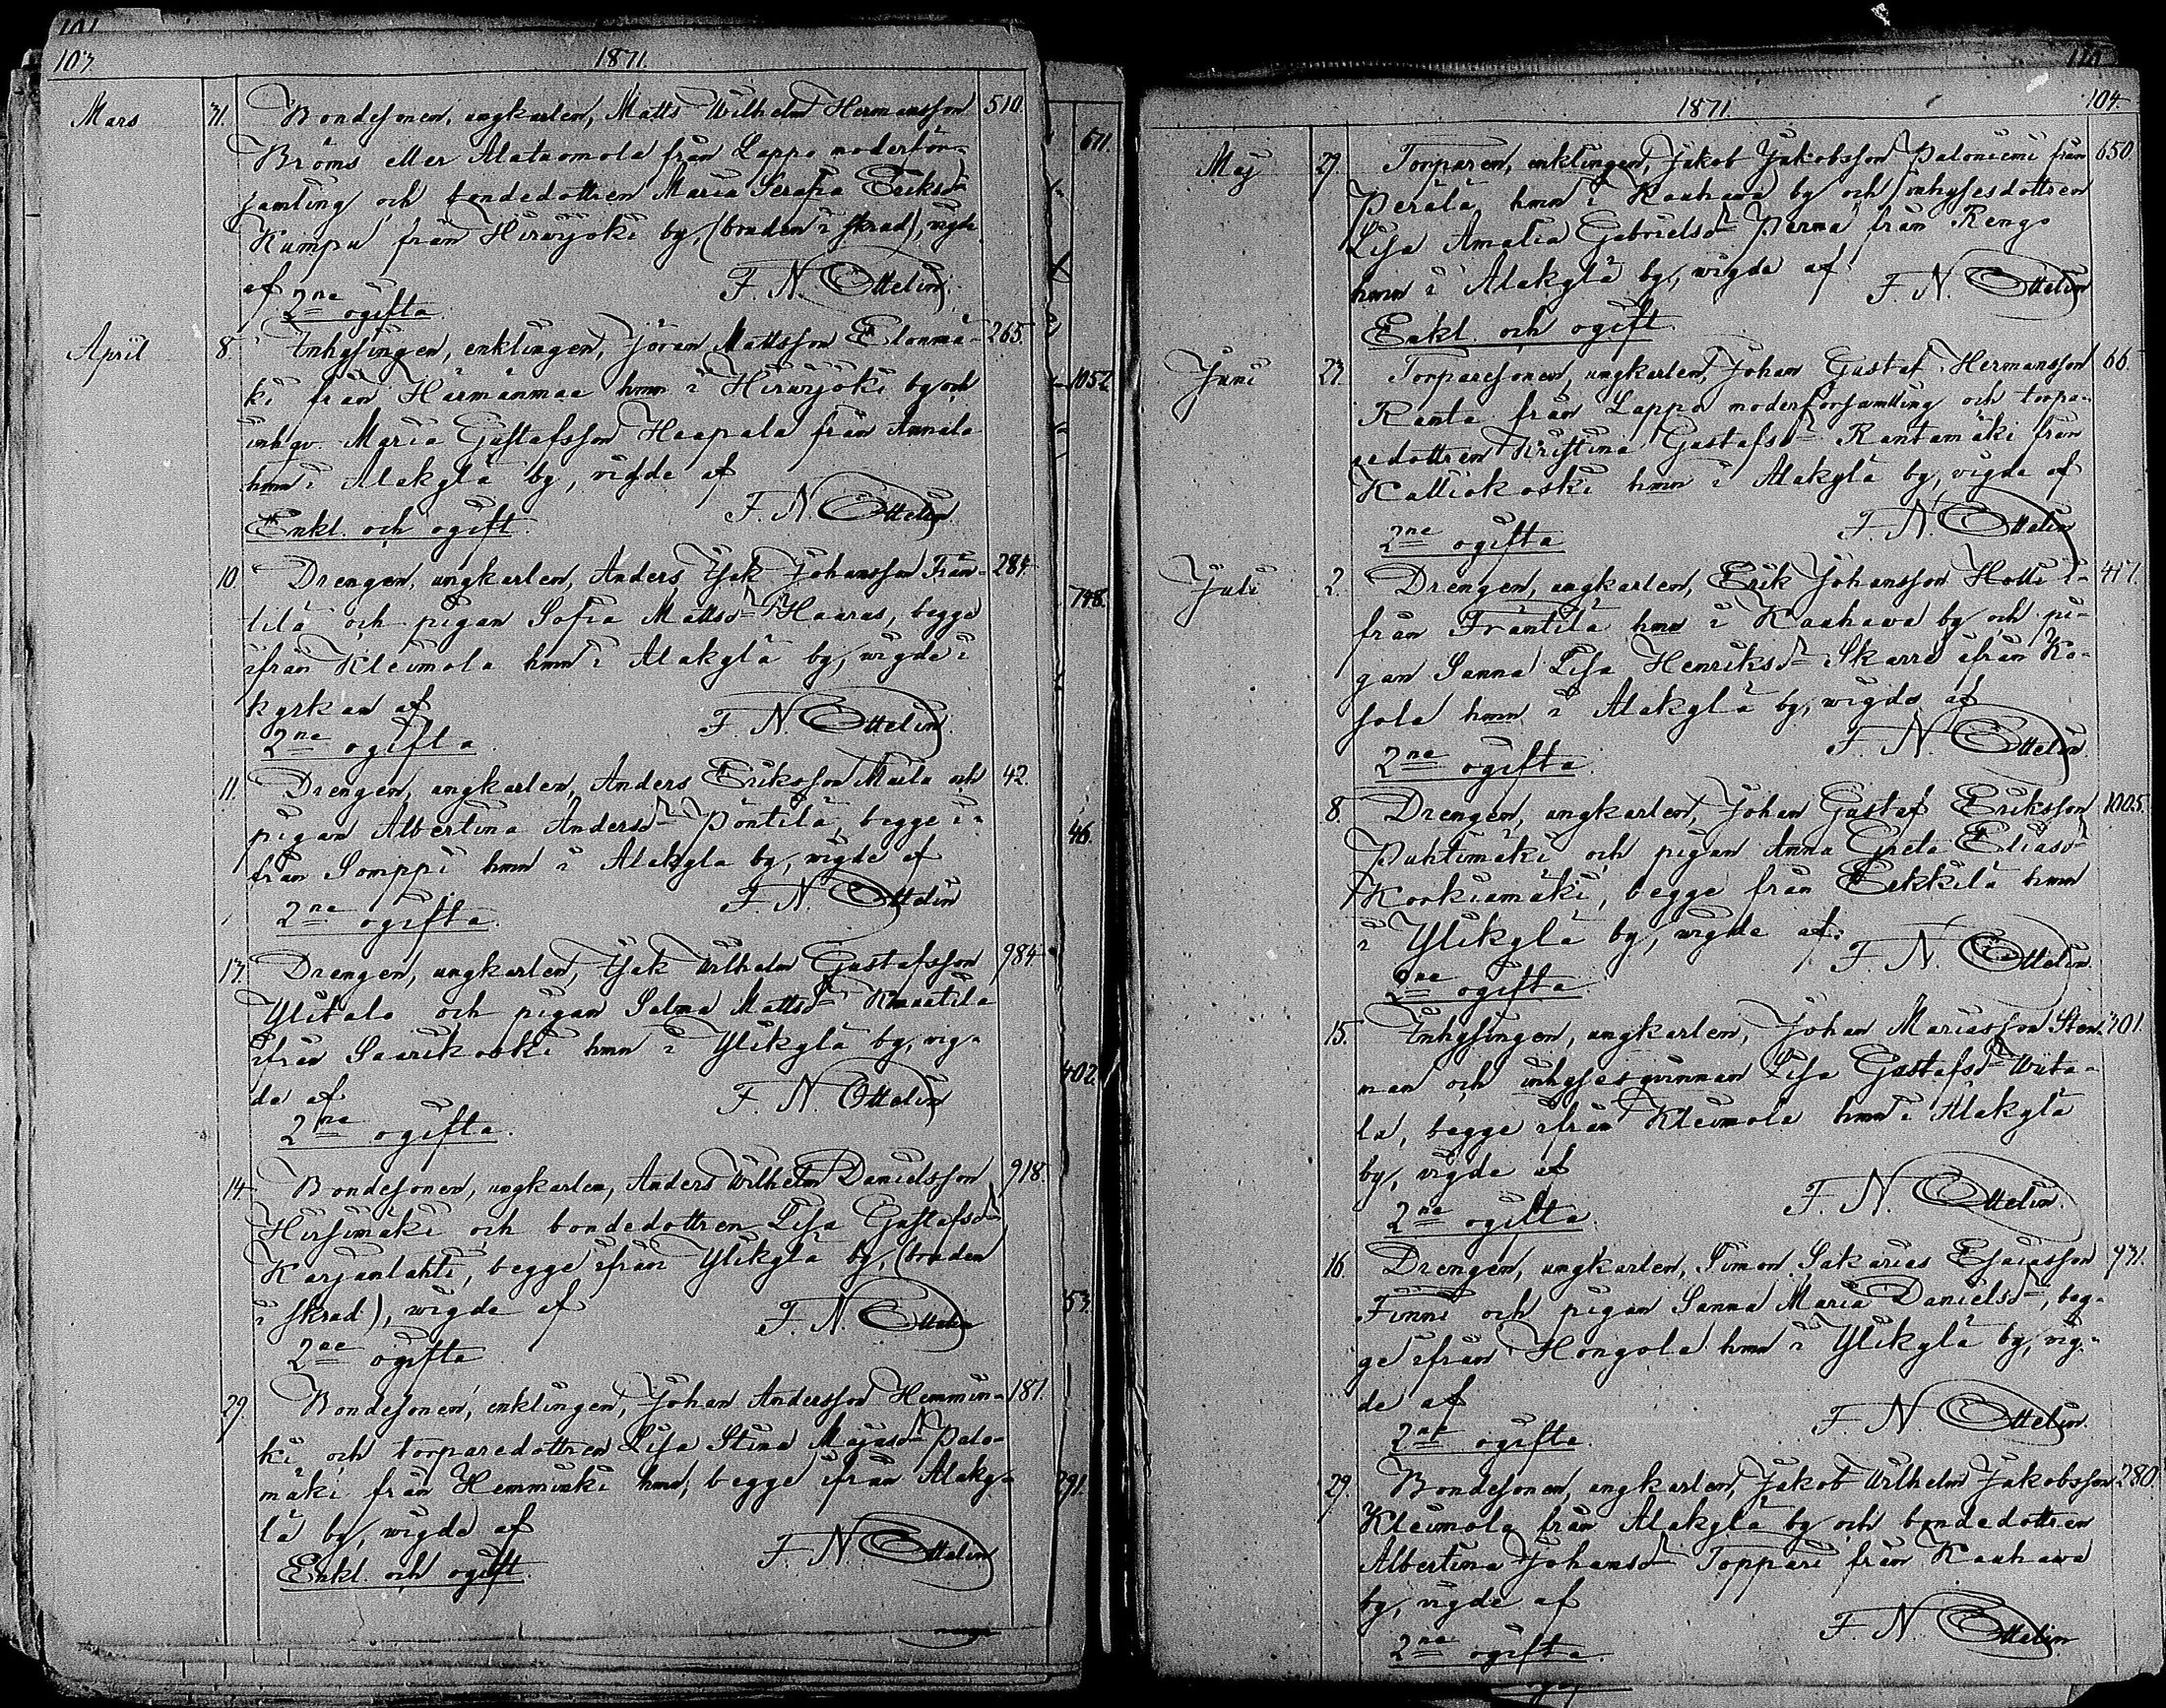 101
103. 1871.
Mars 31. Bondesonen, ungkarlen, Matts Wilhelm Hermansson 510.
Bröms eller Alataomola från Lappo moderför-
samling och bondedottren Maria Serafia Eriksdr
Kumpu från Hirvijoki by, (bonden i skrad), vigde
af F. N. Ottelin.
2ne ogifta.
April 8. Inhysingen, enklingen, Jöran Mattsson Elonmä- 265.
ki från Härmänmaa hmn i Hirvijoki by och
inhqv. Maria Gustafsson Haapala från Annala
hmn i Alakylä by, vigde af
F. N. Ottelin.
Enkl. och ogift.
10. Drengen, ungkarlen, Anders Isak Johansson Frän- 284.
tilä och pigan Sofia Mattsdr Haaras, begge
ifrån Kleimola hmn i Alakylä by, vigde i
kyrkan af F. N. Ottelin.
2ne ogifta.
11. Drengen, ungkarlen, Anders Eriksson Marla och 42.
pigan Albertina Andersdr Pöntilä, begge i-
från Somppi hmn i Alakylä by, vigde af
F. N. Ottelin
2ne ogifta.
13. Drengen, ungkarlen, Isak Wilhelm Gustafsson 984.
Ylitalo och pigan Salma Mattsdr Knuutila
ifrån Saarikoski hmn i Ylikylä by, vig-
de af F. N. Ottelin
2ne ogifta.
14. Bondesonen, ungkarlen, Anders Wilhelm Danielsson 918.
Hirsimäki och bondedottren Lisa Gustafsdr
Karjanlahti, begge ifrån Ylikylä by, (bonden
i skrad), vigde af F. N. Ottelin
2ne ogifta
29. Bondesonen, enklingen, Johan Andersson Hemmin- 187.
ki och torparedottren Lisa Stina Majasdr Palo-
mäki från Hemminki hmn, begge ifrån Alaky-
lä by, vigde af F. N. Ottelin
Enkl. och ogift.
671.
1052
798.
46.
402.
53.
291.
1871. 104.
Maj 29. Torparen, enklingen, Jakob Jakobsson Paloniemi från 650.
Perälä hmn i Kauhava by och inhysesdottren
Lisa Amalia Gabrielsdr Perma från Rengo
hmn i Alakylä by, vigde af F. N. Ottelin
Enkl. och ogift.
Juni 23. Torparesonen, ungkarlen, Johan Gustaf Hermansson 66.
Ranta från Lappo moderförsamling och torpa-
redottren Kristina Gustafsdr Rantamäki från
Kalliokoski hmn i Alakylä by, vigde af
F. N. Ottelin
2ne ogifta
Juli 2. Drengen, ungkarlen, Erik Johansson Holli i- 417.
från Fräntilä hmn i Kauhava by och pi-
gan Sanna Lisa Henriksdr Skarra ifrån Ko-
sola hmn i Alakylä by, vigde af
F. N. Ottelin.
2ne ogifta.
8. Drengen, ungkarlen, Johan Gustaf Eriksson 1005.
Puhtimäki och pigan Anna Greta Eliasdr
Kookiamäki, begge från Eekkilä hmn
i Ylikylä by, vigde af: F. N. Ottelin.
2ne ogifta.
15. Inhysingen, ungkarlen, Johan Mariasson Sten- 201.
man och inhysesqvinnan Lisa Gustafsdr Viita-
la, begge ifrån Kleimola hmn i Alakylä
by, vigde af F. N. Ottelin.
2ne ogifta.
16. Drengen, ungkarlen, Simon Sakarias Esaiasson 931.
Finni och pigan Sanna Maria Danielsdr, beg-
ge ifrån Hongola hmn i Ylikylä by, vig-
de af F. N. Ottelin.
2ne ogifta.
29. Bondesonen, ungkarlen, Jakob Wilhelm Jakobsson 280.
Kleimola från Alakylä by och bondedottren
Albertina Johansdr Toppari från Kauhava
by, vigde af F. N. Ottelin
2ne ogifta.